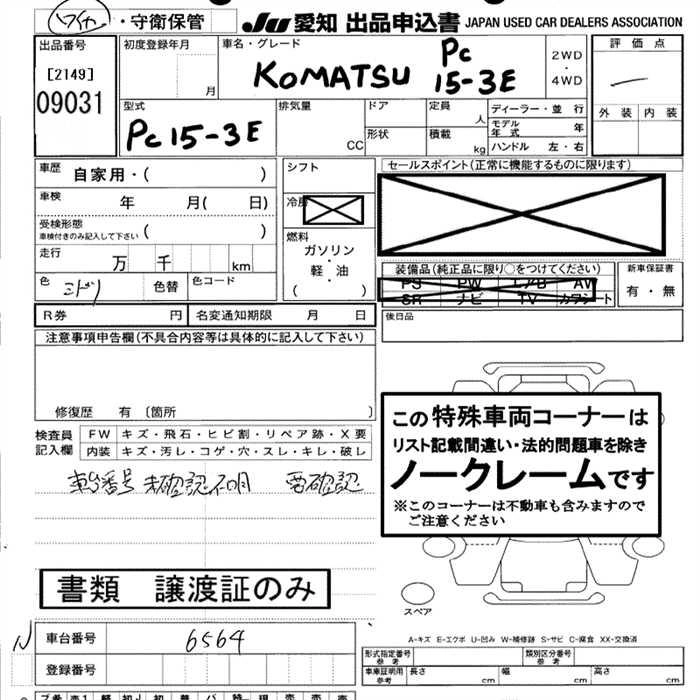 ワイ ・守衛保管 JU 愛知 出品申込書 JAPAN USED CAR DEALERS ASSOCIATION
出品番号 初度登録年月 月 車名・グレード 2WD・4WD 評価点
[2149] KOMATSU PC 15-3E
09031 外装 内装
型式 PC15-3E 排気量 CC ドア 形状 定員 人 積載 kg ディーラー・並行
モデル年式 年
ハンドル 左・右
車歴 自家用・( ) シフト セールスポイント(正常に機能するものに限ります)
車検 年 月( 日) 冷房
受検形態 車検付きのみ記入して下さい ( ) 燃料
走行 万 千 km ガソリン・軽・油 ( )
色 ミドリ 色替 色コード 装備品(純正品に限り○をつけてください) 新車保証書
PS PW エアB AW 有・無
SR ナビ TV カワシート
R券 円 名変通知期限 月 日 後日品
注意事項申告欄(不具合内容等は具体的に記入して下さい)
修復歴 有 〔箇所 〕
この特殊車両コーナーは
リスト記載間違い・法的問題車を除き
ノークレームです
※このコーナーは不動車も含みますので
ご注意ください
検査員記入欄 FW キズ・飛石・ヒビ割・リペア跡・X要
内装 キズ・汚レ・コゲ・穴・スレ・キレ・破レ
車台番号 未確認不明 要確認
書類 譲渡証のみ
スペア
A-キズ E-エクボ U-凹み W-補修跡 S-サビ C-腐食 XX-交換済
N 車台番号 6564
登録番号
形式指定番号 参考 類別区分番号 参考
車庫証明用 参考 長さ cm 幅 cm 高さ cm